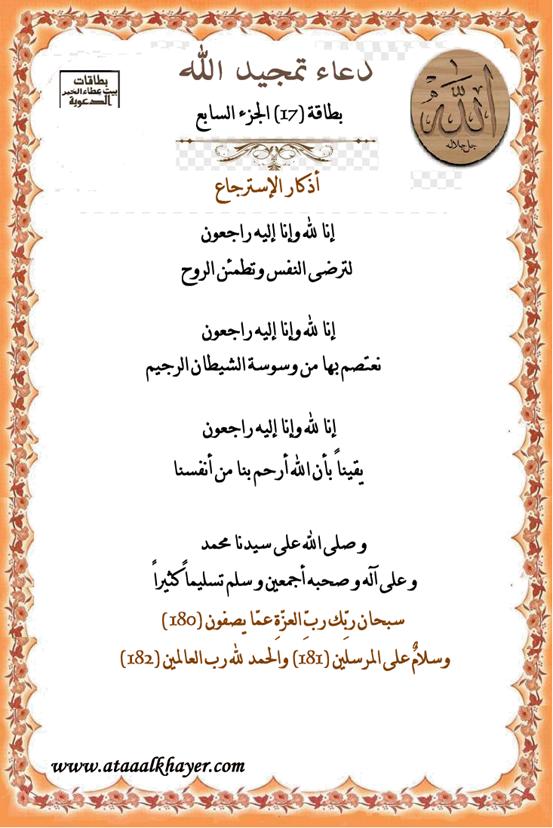 دعاء تمجيد الله
بطاقات
بيت عطاء الخير
الدعوية
الله
جل جلاله
بطاقة (17) الجزء السابع
أذكار الإسترجاع
إنا لله وإنا إليه راجعون
لترضى النفس وتطمئن الروح
إنا لله وإنا إليه راجعون
نعتصم بها من وسوسة الشيطان الرجيم
إنا لله وإنا إليه راجعون
يقيناً بأن الله أرحم بنا من أنفسنا
وصلى الله على سيدنا محمد
وعلى آله وصحبه أجمعين وسلم تسليماً كثيراً
سبحان ربِّك ربِّ العزّةِ عمّا يصفون (180)
وسلامٌ على المرسلين (181) والحمد لله رب العالمين (182)
www.ataaalkhayer.com